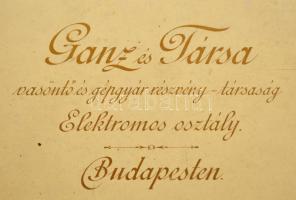 Ganz és Társa
vasöntő és gépgyár részvény-társaság
Elektromos osztály.
Budapesten.